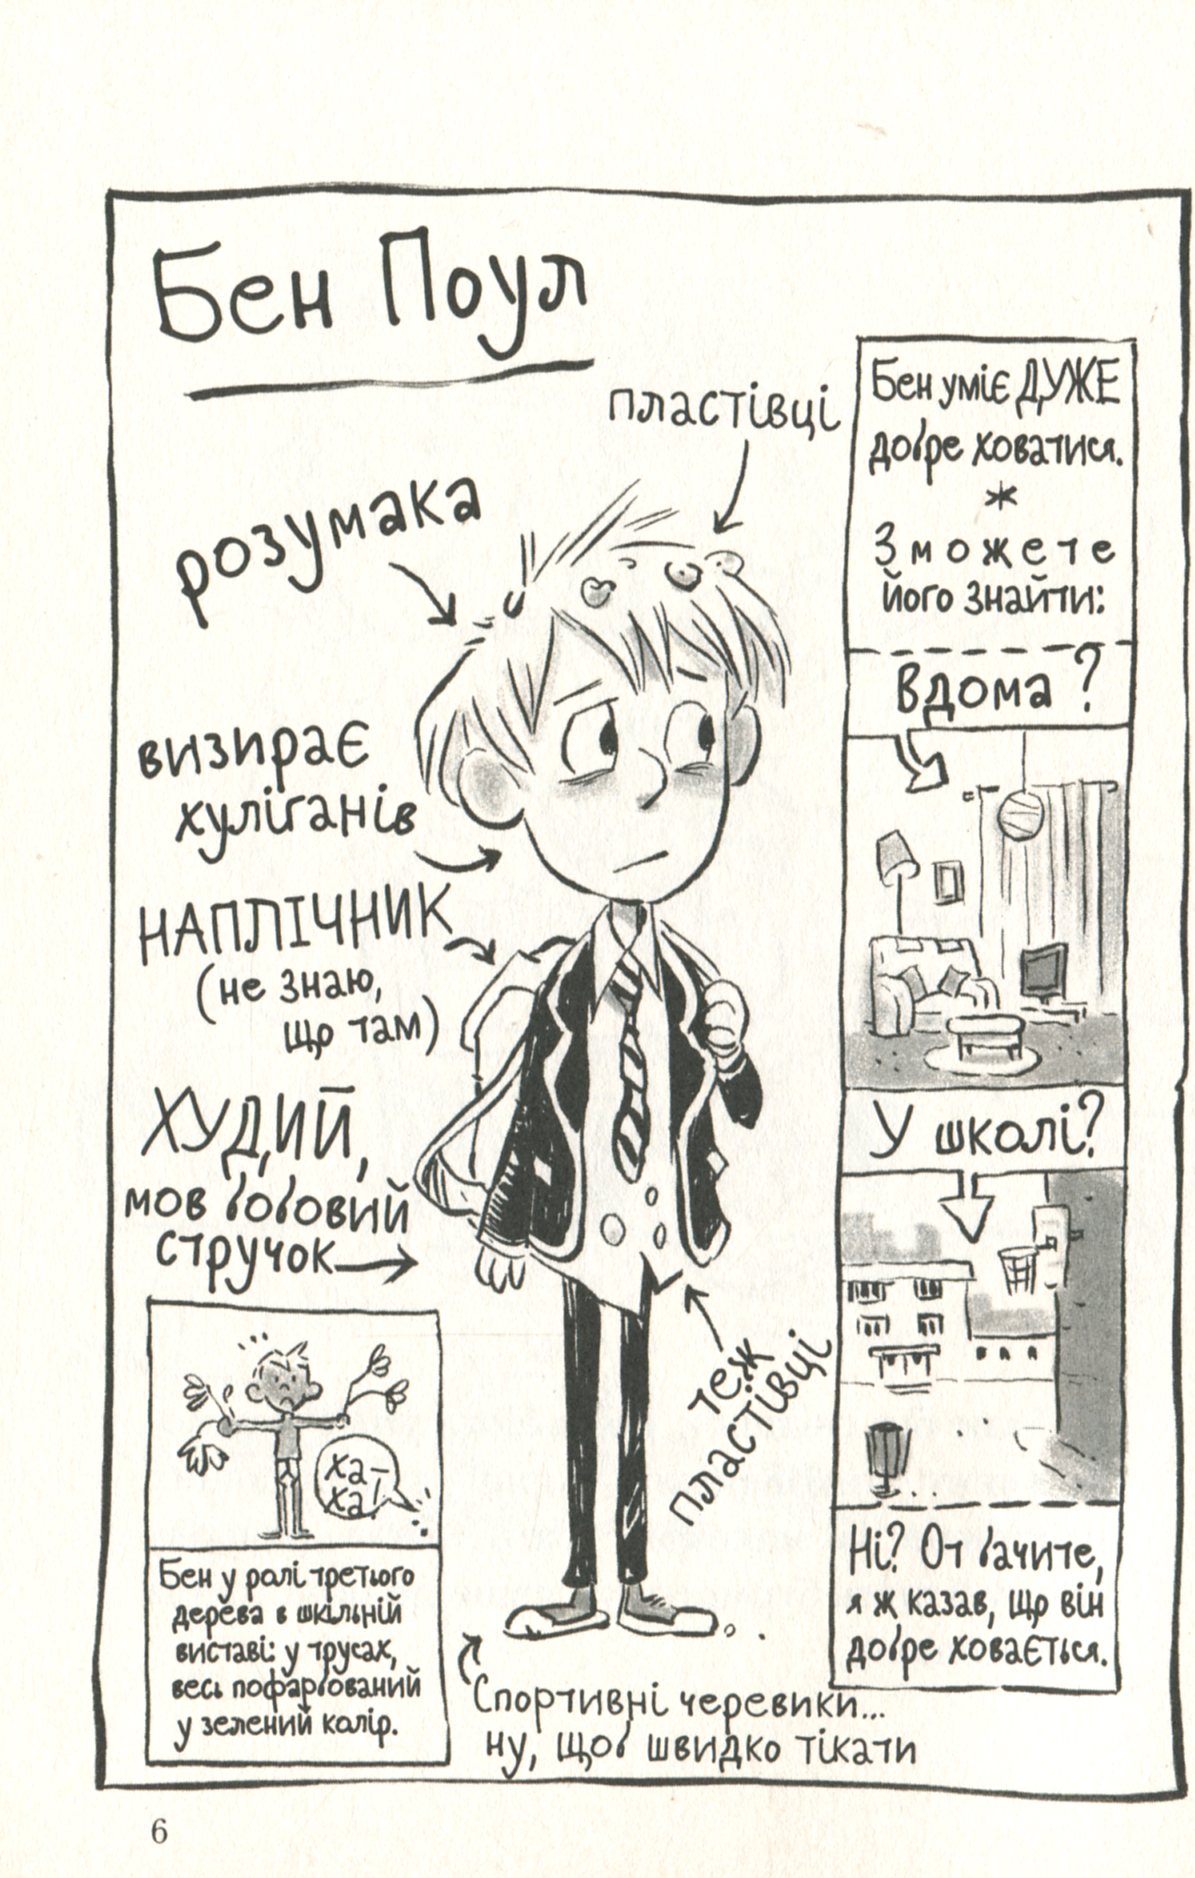 Бен Поул
пластівці
розумака
визирає
хуліганів
НАПЛІЧНИК
(не знаю,
що там)
ХУДИЙ,
мов бобовий
стручок
теж
пластівці
Ха-
ха!
Бен у ролі третього
дерева в шкільній
виставі: у трусах,
весь пофарбований
у зелений колір.
Спортивні черевики...
ну, щоб швидко тікати
Бен уміє ДУЖЕ
добре ховатися.
*
Зможете
його знайти:
Вдома?
У школі?
Ні? От бачите,
я ж казав, що він
добре ховається.
6